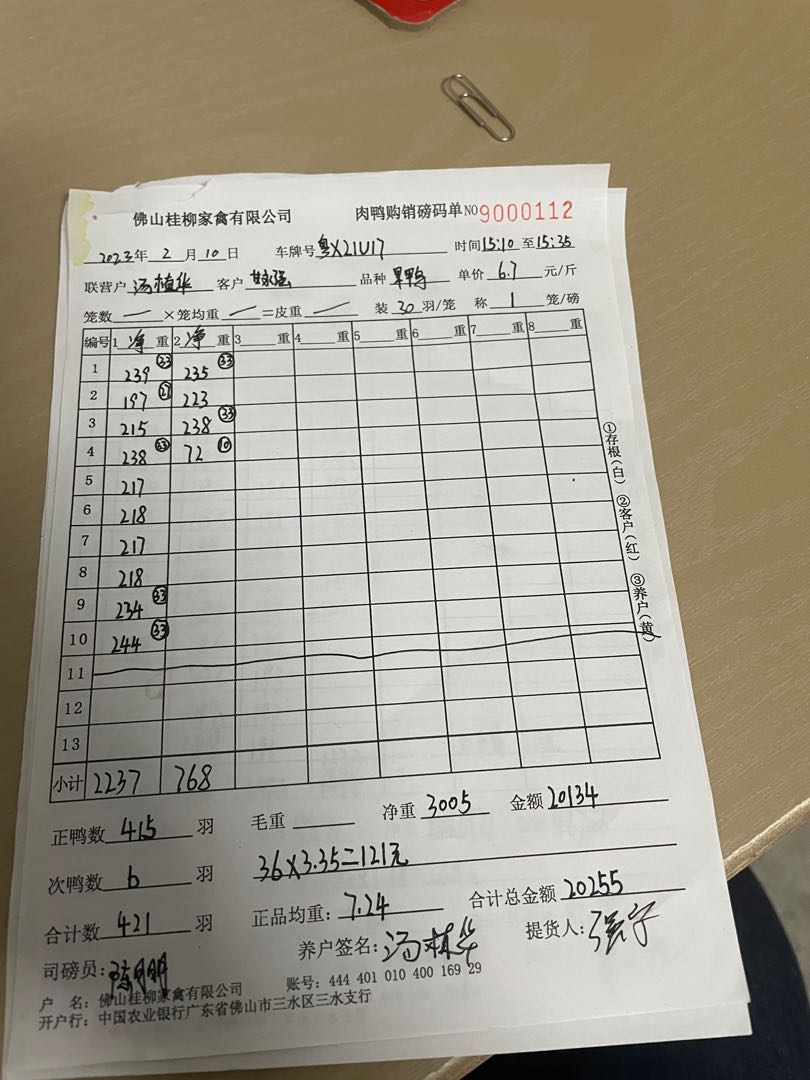 佛山桂柳家禽有限公司 肉鸭购销磅码单 NO 9000112
2023年 2 月 10 日 车牌号 粤X21U17 时间 15:10 至 15:35
联营户 汤植华 客户 品种 果鸭 单价 6.7 元/斤
笼数 — ×笼均重 — =皮重 — 装 30 羽/笼 称 1 笼/磅
编号 1 净 重 2 净 重 3 重 4 重 5 重 6 重 7 重 8 重
1 239 33 235 33
2 197 27 223
3 215 238 33
4 238 33 72 10
5 217
6 218
7 217
8 218
9 234 33
10 244 33
11
12
13
小计 2237 768
①存根(白) ②客户(红) ③养户(黄)
正鸭数 415 羽 毛重 净重 3005 金额 20134
次鸭数 6 羽 36×3.35=121元
合计数 421 羽 正品均重: 7.24 合计总金额 20255
司磅员: 养户签名: 汤植华 提货人:
户 名: 佛山桂柳家禽有限公司 账号: 444 401 010 400 169 29
开户行: 中国农业银行广东省佛山市三水区三水支行